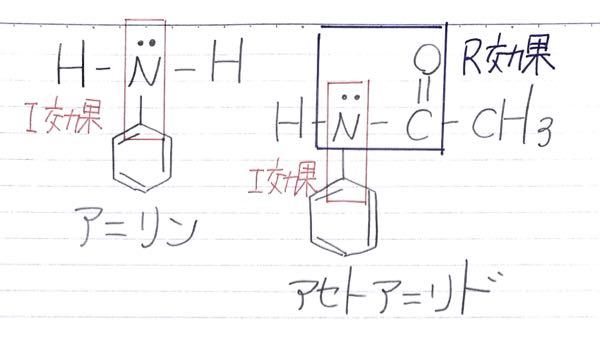 H-N-H
I効果
アニリン
O
R効果
H-N-C-CH3
I効果
アセトアニリド